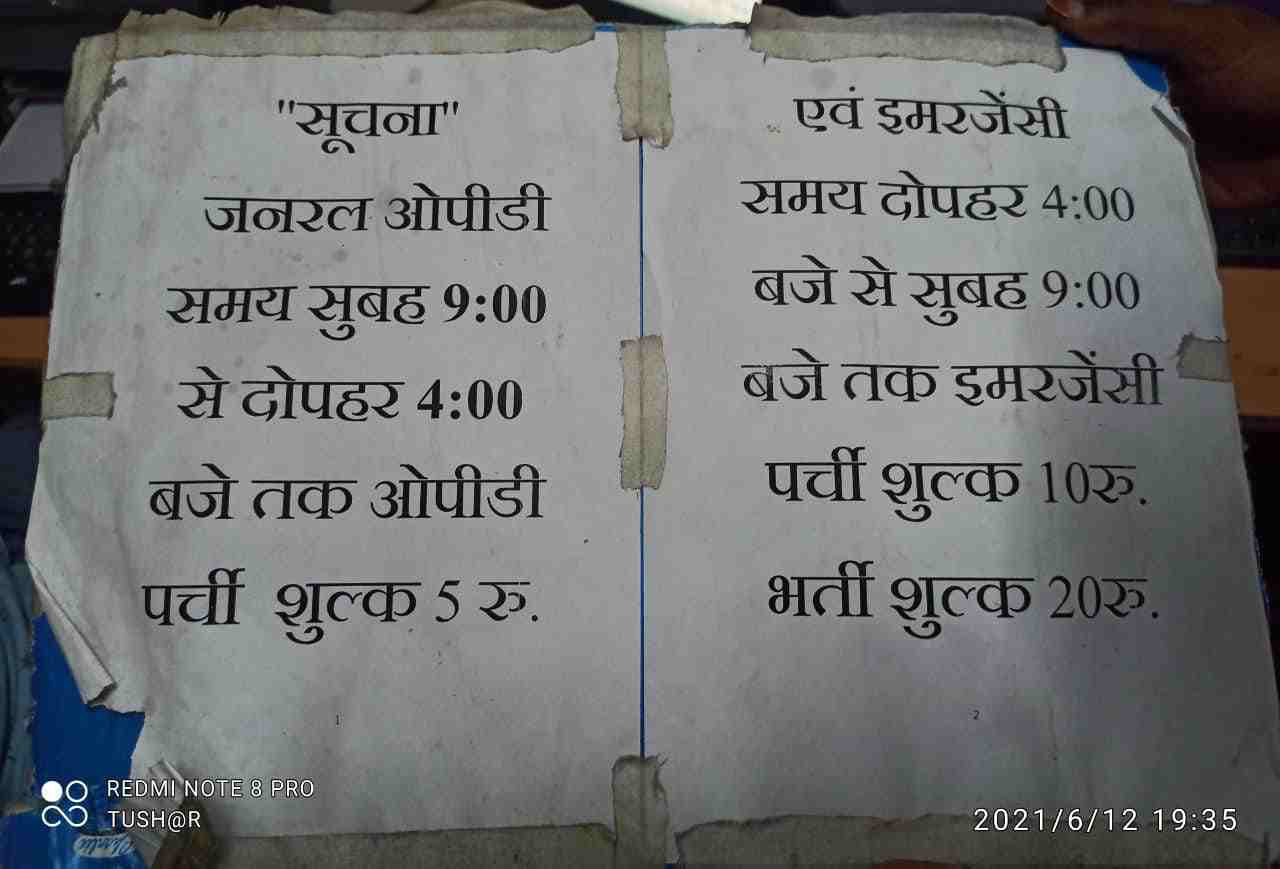 "सूचना"
जनरल ओपीडी
समय सुबह 9:00
से दोपहर 4:00
बजे तक ओपीडी
पर्ची शुल्क 5 रु.
1
एवं इमरजेंसी
समय दोपहर 4:00
बजे से सुबह 9:00
बजे तक इमरजेंसी
पर्ची शुल्क 10रु.
भर्ती शुल्क 20रु.
2
REDMI NOTE 8 PRO
TUSH@R
2021/6/12 19:35